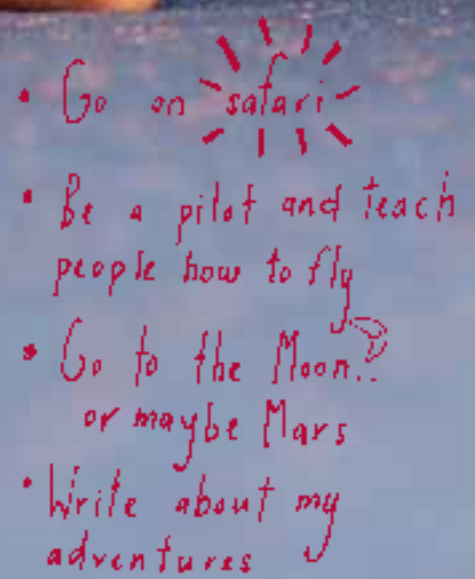 • Go on safari
• Be a pilot and teach
people how to fly
• Go to the Moon..
or maybe Mars
• Write about my
adventures